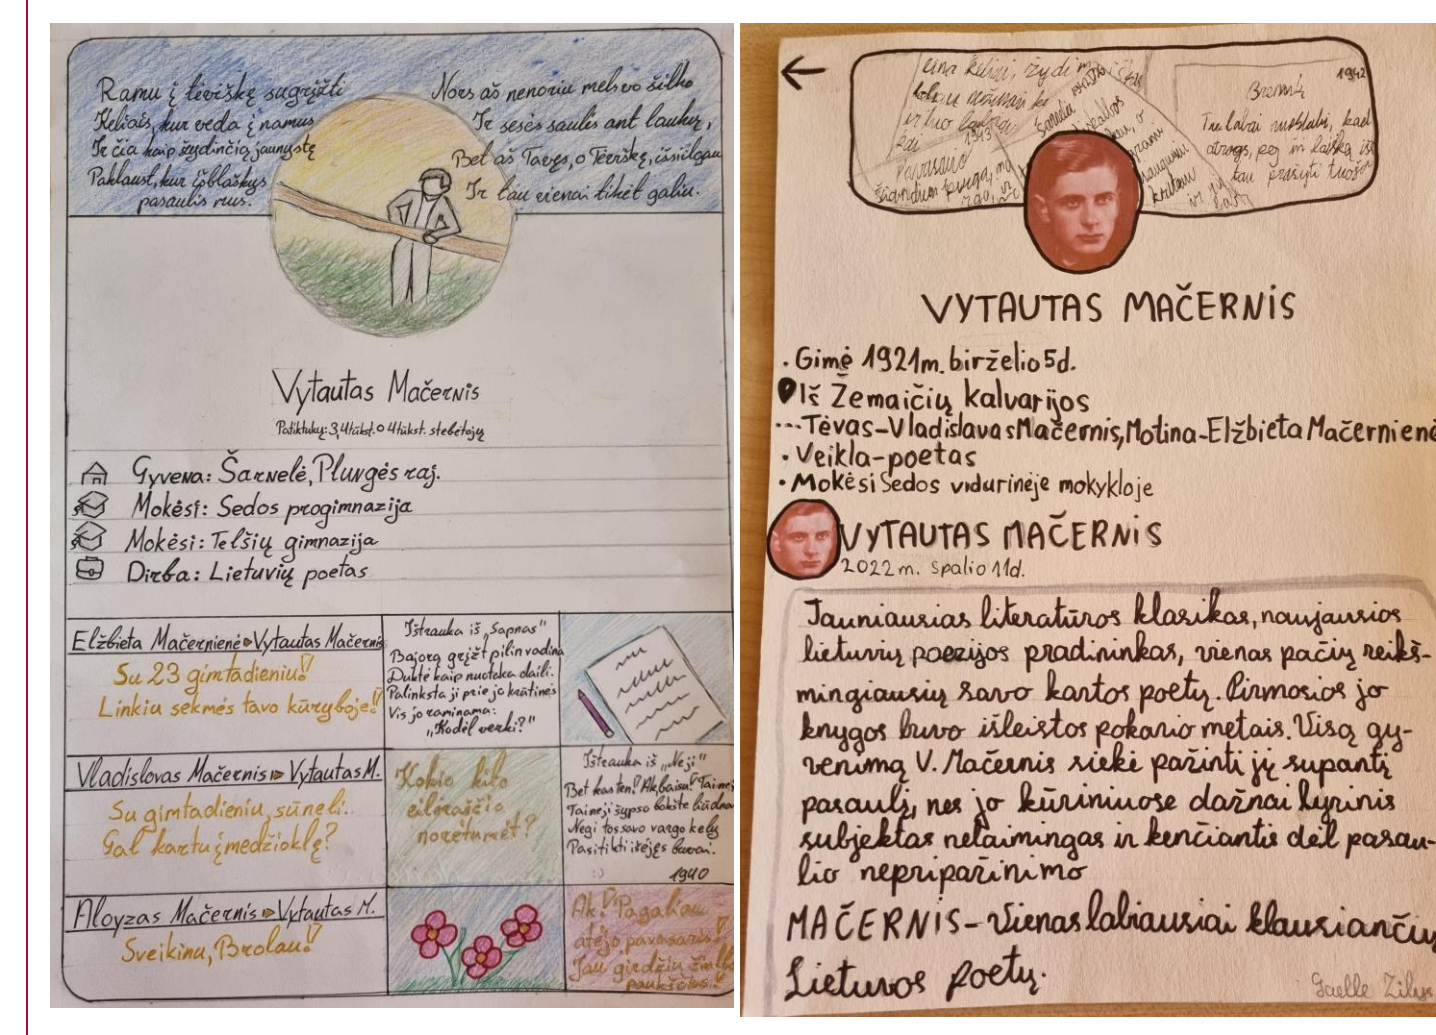 Ramu į tėviškę sugrįžti
Keliais, kur veda į namus
Ir čia kaip žydinčią jaunystę
Paklaust, kur išblaškys
pasaulis mus.
Nors aš nenoriu melsvo šilko
Ir sesės saulės ant laukų,
Bet aš Tavęs, o Tėviškę, išsiilgau
Ir tau vienai tikėt galiu.
Vytautas Mačernis
Patiktukų: 3,4 tūkst. o 4 tūkst. stebėtojų
Gyvena: Šarnelė, Plungės raj.
Mokėsi: Sedos progimnazija
Mokėsi: Telšių gimnazija
Dirba: Lietuvių poetas
Elžbieta Mačernienė Vytautas Mačernis
Su 23 gimtadieniu!
Linkiu sekmės tavo kūryboje!
Ištrauka iš „Sapnas"
Bajorą grįžt pilin vadina
Duktė kaip nuotaka daili.
Palinksta ji prie jo krūtinės
Vis jo raminama:
„Kodėl verki?"
Vladislovas Mačernis Vytautas M.
Su gimtadieniu, sūneli.
Gal kartu į medžioklę?
Kokio kito
eilėraščio
norėtumėt?
Ištrauka iš „Neji"
Bet kas ten? Ak, baisu!
šypso bokšte
Negi tos savo vargo kelų
Pasitikti išėjęs buvai.
:)
1940
Aloyzas Mačernis Vytautas M.
Sveikinu, Brolau!
Ak! Pagaliau
atėjo pavasaris!
Jau girdžiu
paukščius!
eina keliai, žydi
1943
pavasario
1942
Bremė
Tu labai nustebsi, kad
VYTAUTAS MAČERNIS
• Gimė 1921m. birželio 5d.
Iš Žemaičių kalvarijos
...Tėvas-Vladislavas Mačernis, Motina-Elžbieta Mačernienė
• Veikla-poetas
• Mokėsi Sedos vidurinėje mokykloje
VYTAUTAS MAČERNIS
2022m. spalio 11d.
Jauniausias literatūros klasikas, naujausios
lietuvių poezijos pradininkas, vienas pačių reikš-
mingiausių savo kartos poetų. Pirmosios jo
knygos buvo išleistos pokario metais. Visą gy-
venimą V. Mačernis siekė pažinti jį supantį
pasaulį, nes jo kūriniuose dažnai lyrinis
subjektas nelaimingas ir kenčiantis dėl pasau-
lio nepripažinimo
MAČERNIS-vienas labiausiai klausiančių
Lietuvos poetų.
Gaelle